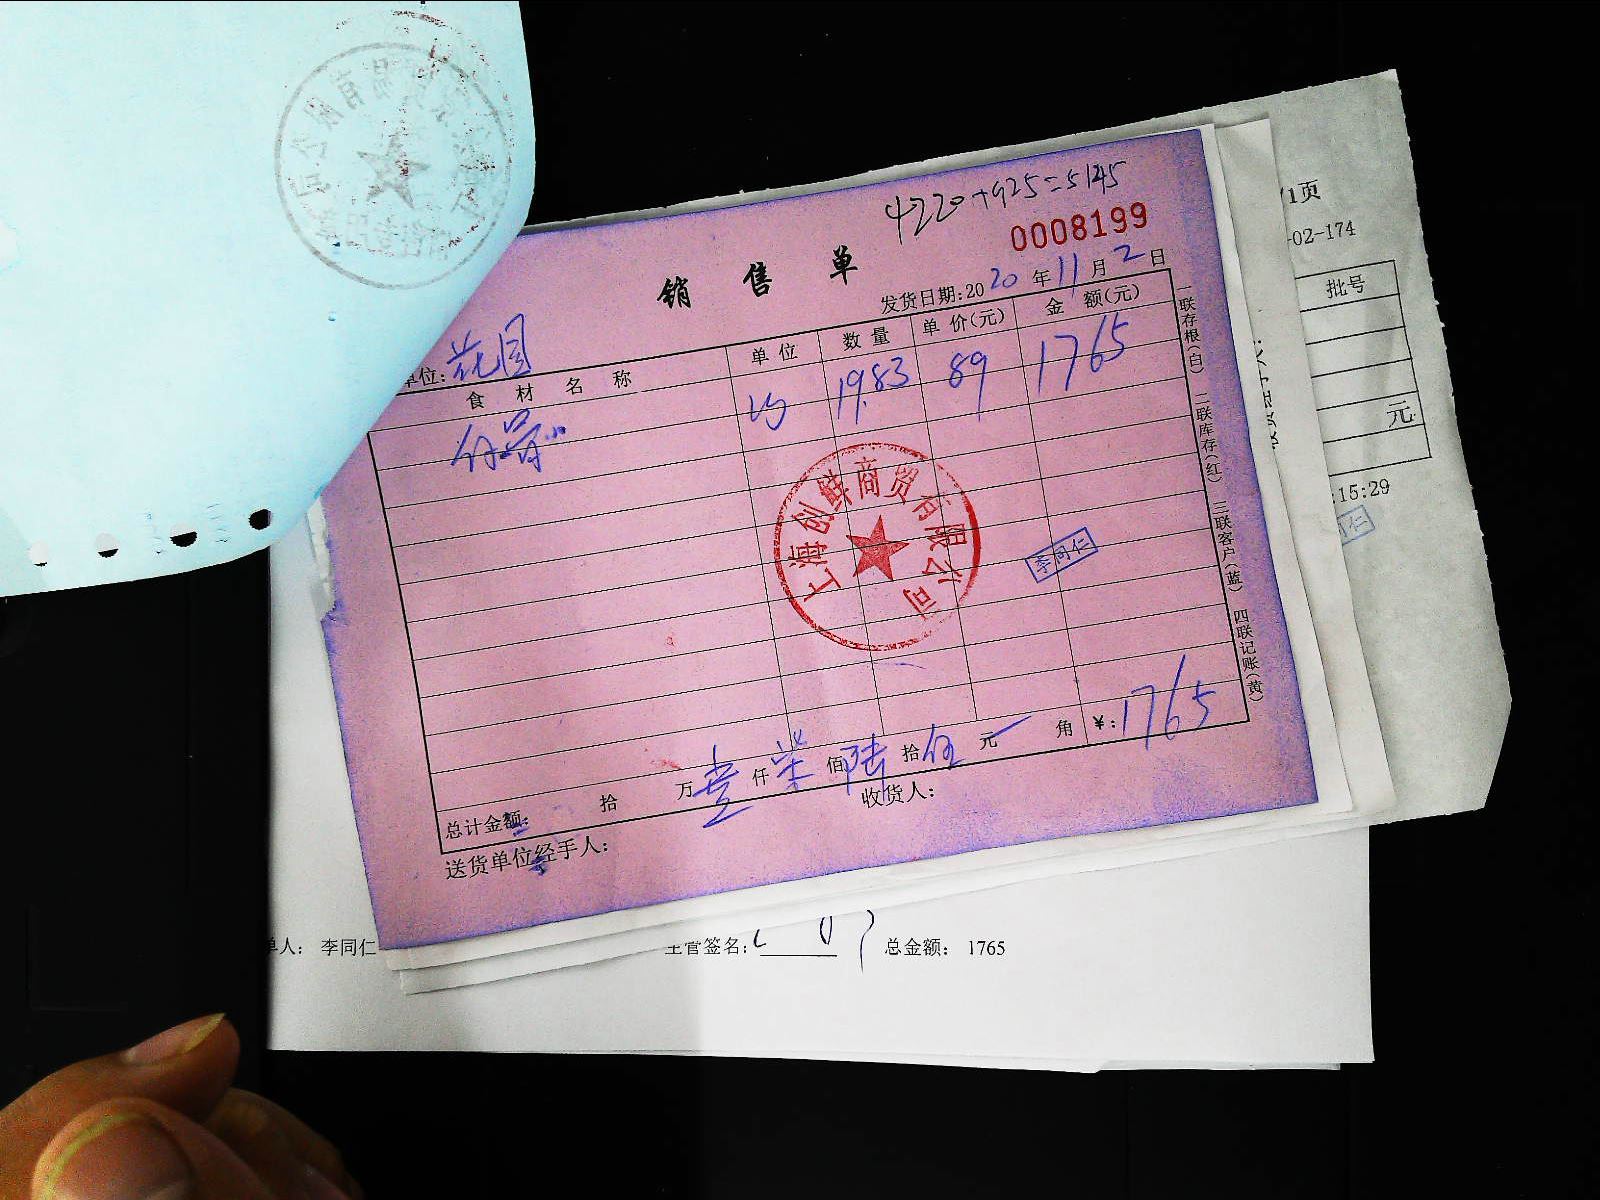 4220+925=5145
0008199
销售单
发货日期:2020年11月2日
单位:花园
食材名称 单位 数量 单价(元) 金额(元)
19.83 89 1765
上海创鲜商贸有限公司
李同仁
一联存根(白) 二联库存(红) 三联客户(蓝) 四联记账(黄)
总计金额: 拾 万 壹 仟 柒 佰 陆 拾 伍 元 角 ¥:1765
送货单位经手人: 收货人:
单人: 李同仁 主管签名: 总金额: 1765
/1页
-02-174
批号
元
:15:29